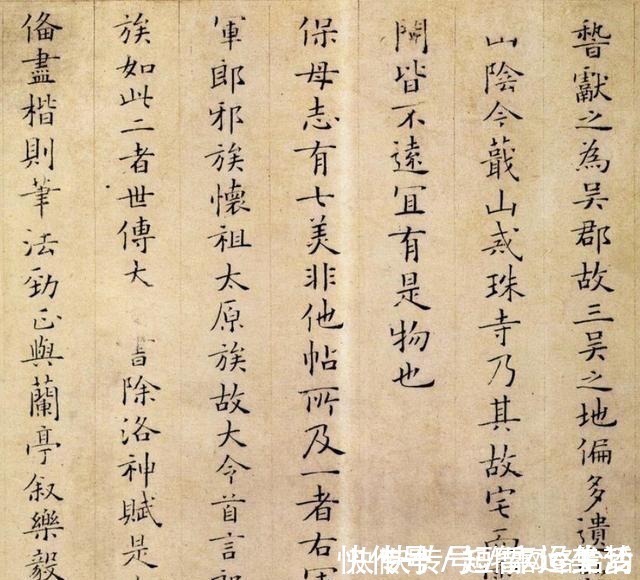 晉獻之為吳郡故三吳之地偏多遺
山陰今蕺山戒珠寺乃其故宅而
間皆不遠宜有是物也
保母志有七美非他帖所及一者右軍
軍郎邪族懷祖太原族故大令首言
族如此二者世傳大 書除洛神賦是
俻盡楷則筆法勁正與蘭亭叙樂毅